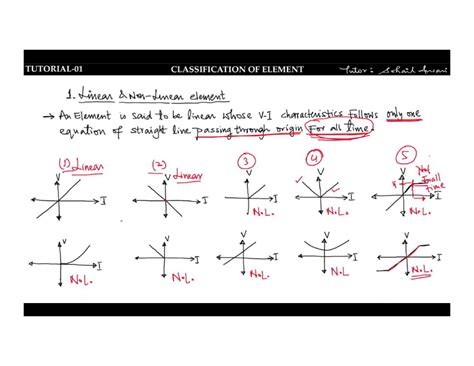 TUTORIAL-01 CLASSIFICATION OF ELEMENT Tutor : Sohail Ansari
1. Linear & Non-Linear element
→ An Element is said to be linear whose V-I characteristics follows only one
equation of straight line passing through origin For all time.
(1) Linear (2) Linear 3 4 5
V V V V V Not For all time
I I I I I
N.L. N.L. N.L.
V V V V V
I I I I I
N.L. N.L. N.L. N.L. N.L.